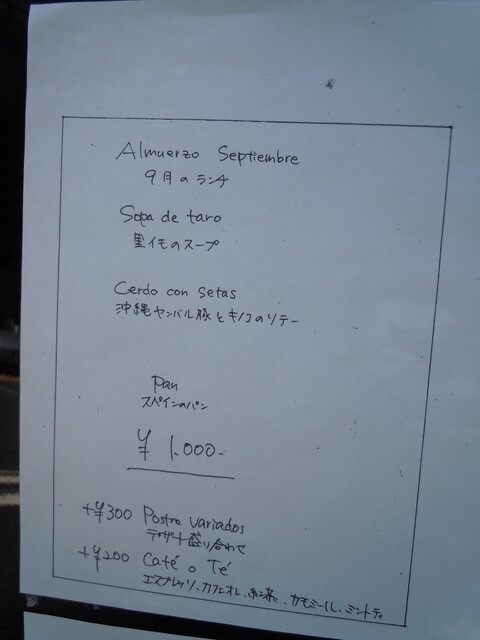 Almuerzo Septiembre
9月のランチ
Sopa de taro
里イモのスープ
Cerdo con setas
沖縄ヤンバル豚とキノコのソテー
Pan
スペインのパン
¥1.000-
+¥300 Postre variados
デザート盛り合わせ
+¥200 Café o Té
エスプレッソ、カフェオレ、紅茶、カモミール、ミントティ